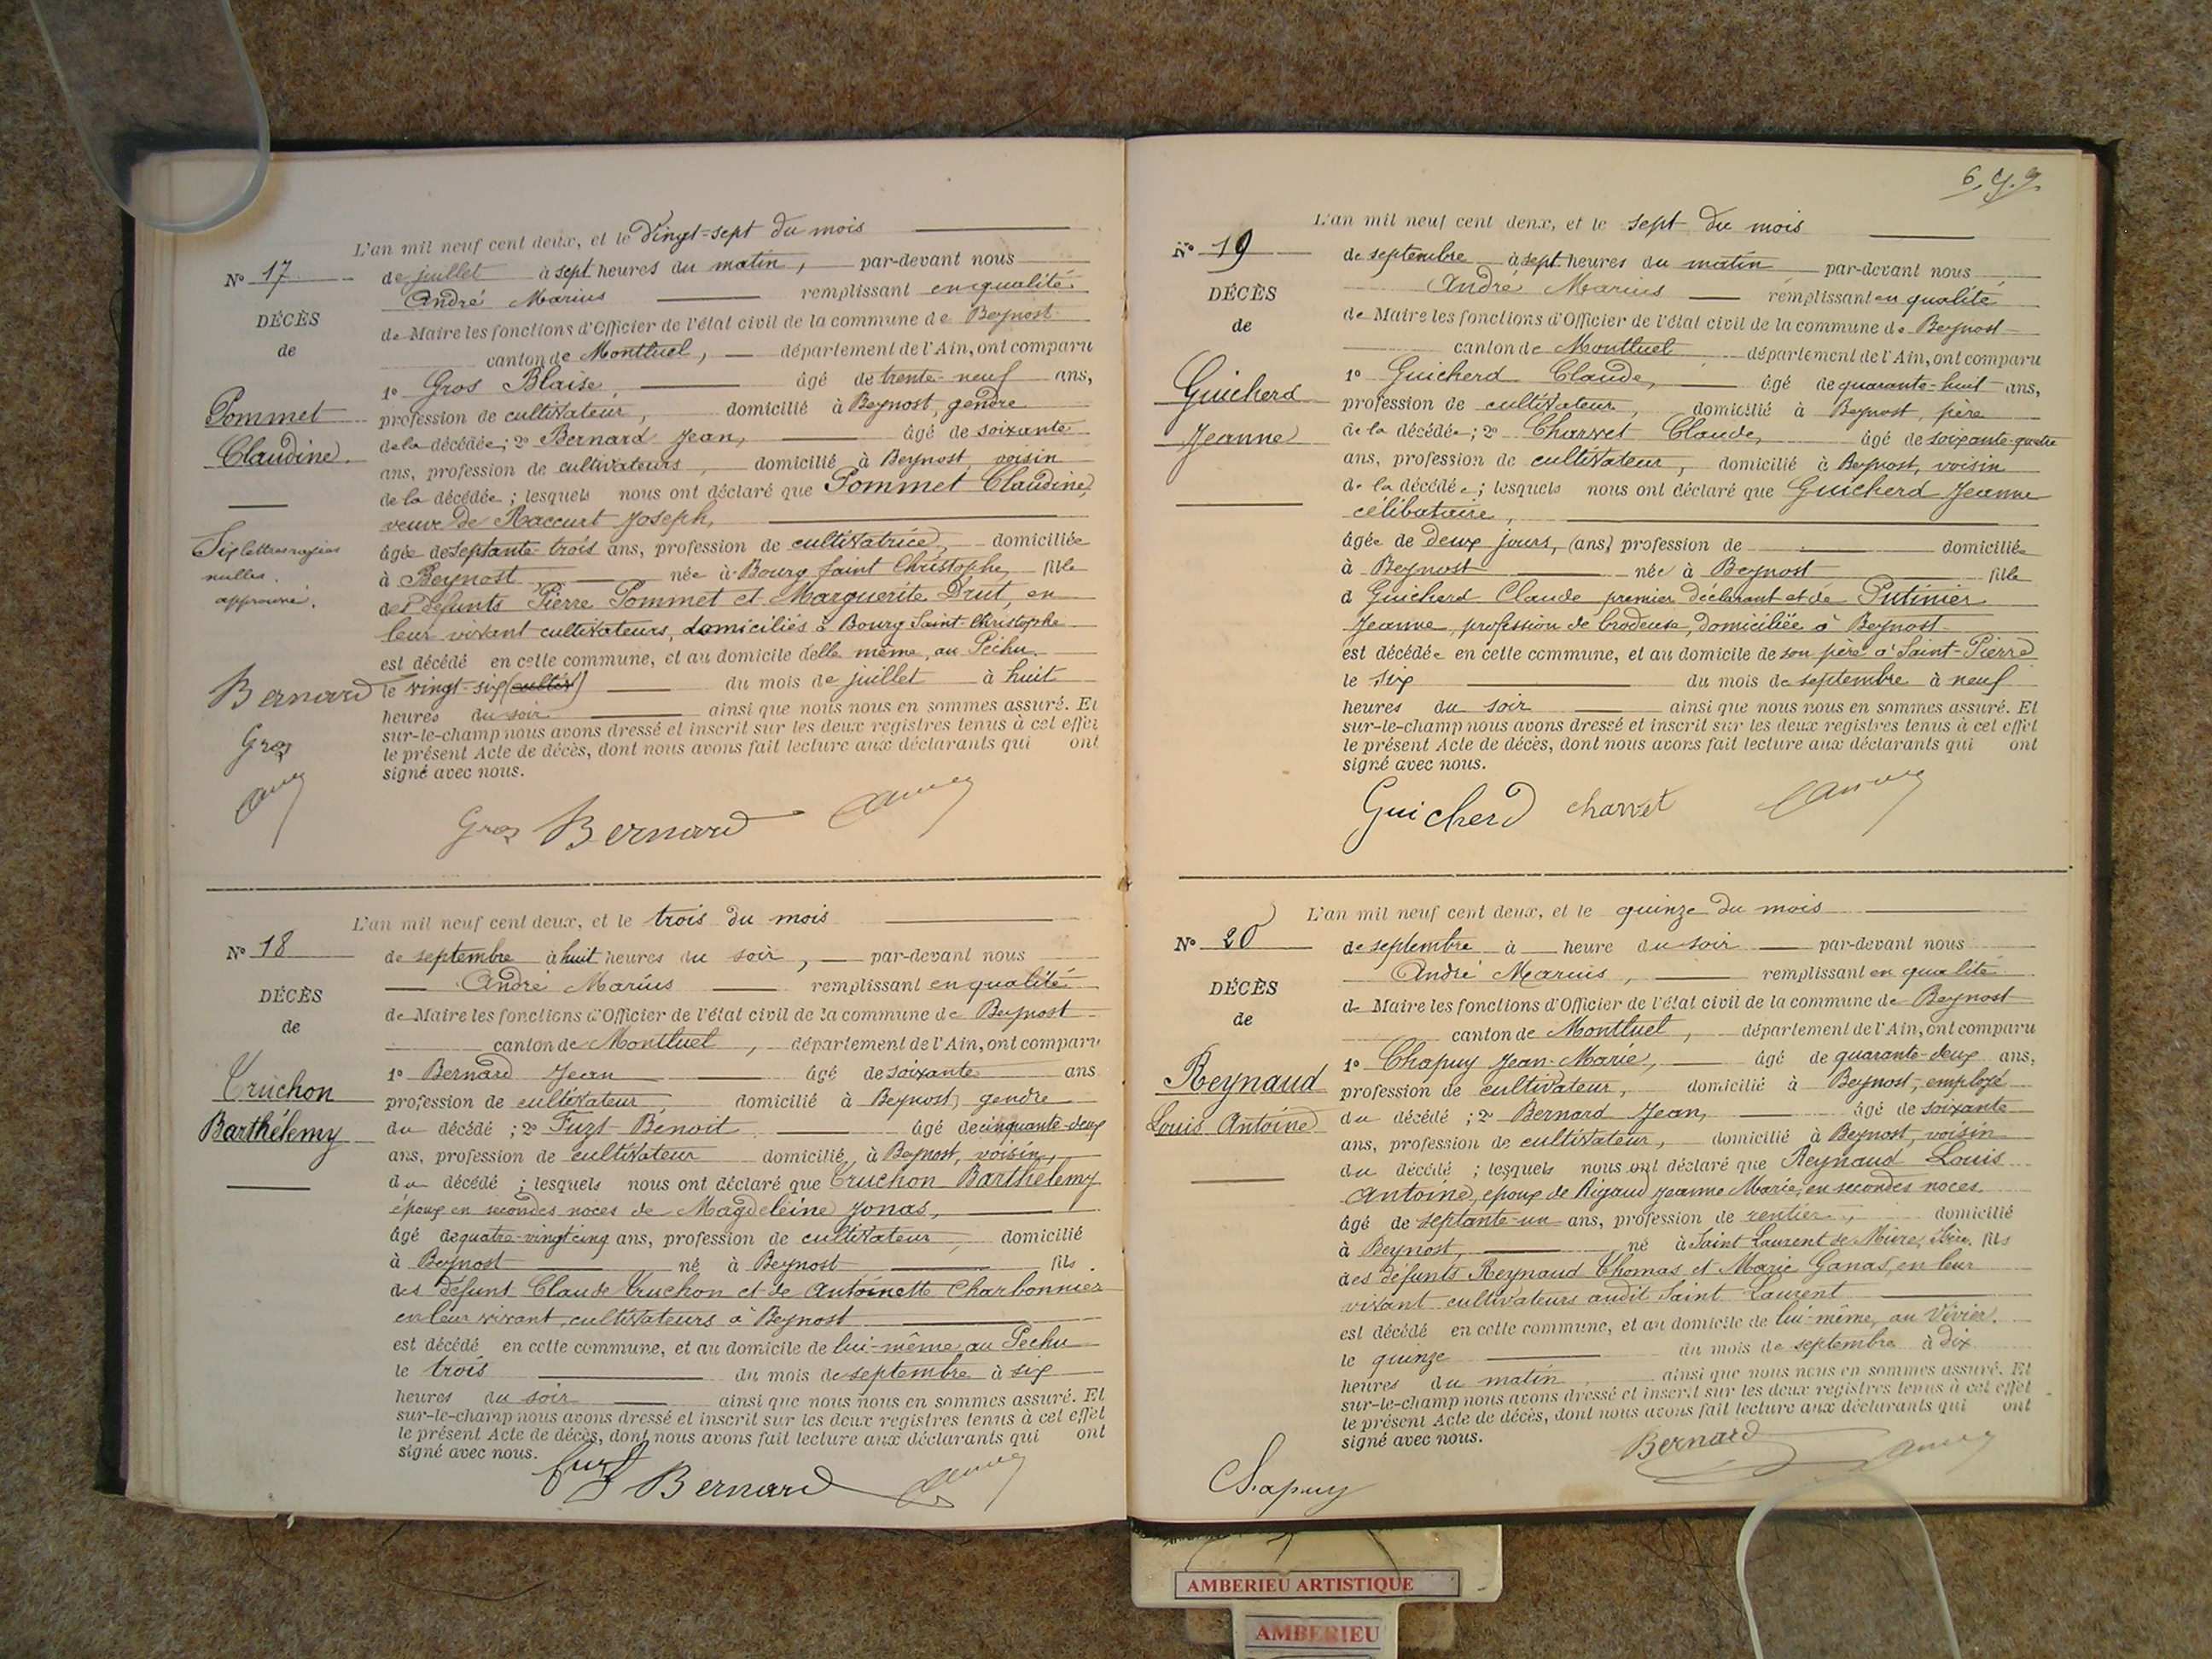 L'an mil neuf cent deux, et le Vingt-sept du mois
N° 17 de juillet à sept heures du matin, par-devant nous
André Marius remplissant en qualité
DÉCÈS
de Maire les fonctions d'Officier de l'état civil de la commune de Beynost
de
canton de Montluel, département de l'Ain, ont comparu
1° Gros Blaise, âgé de trente-neuf ans,
Pommet
profession de cultivateur, domicilié à Beynost, gendre
Claudine
de la décédée; 2° Bernard Jean, âgé de soixante
ans, profession de cultivateurs, domicilié à Beynost, voisin
de la décédée; lesquels nous ont déclaré que Pommet Claudine,
veuve de Raccurt Joseph,
Six lettres rayées
nulles.
approuvé.
âgée de septante-trois ans, profession de cultivatrice, domiciliée
à Beynost née à Bourg Saint Christophe, fille
des défunts Pierre Pommet et Marguerite Drut, en
leur vivant cultivateurs, domiciliés à Bourg Saint-Christophe
est décédé en cette commune, et au domicile d'elle même, au Péchu
le vingt-six (cultiv) du mois de juillet à huit
heures du soir ainsi que nous nous en sommes assuré. Et
sur-le-champ nous avons dressé et inscrit sur les deux registres tenus à cet effet
le présent Acte de décès, dont nous avons fait lecture aux déclarants qui ont
signé avec nous.
Bernard
Gros
Gros Bernard
L'an mil neuf cent deux, et le trois du mois
N° 18 de septembre à huit heures du soir, par-devant nous
André Marius remplissant en qualité
DÉCÈS
de Maire les fonctions d'Officier de l'état civil de la commune de Beynost
de
canton de Montluel, département de l'Ain, ont comparu
1° Bernard Jean âgé de soixante ans
Truchon
profession de cultivateur domicilié à Beynost, gendre
Barthélemy
du décédé; 2° Fuzt Benoit âgé de cinquante-deux
ans, profession de cultivateur domicilié à Beynost, voisin,
du décédé; lesquels nous ont déclaré que Truchon Barthélemy
époux en secondes noces de Magdeleine Jonas,
âgé de quatre-vingt cinq ans, profession de cultivateur, domicilié
à Beynost né à Beynost fils
des défunt Claude Truchon et de Antoinette Charbonnier
en leur vivant cultivateurs à Beynost
est décédé en cette commune, et au domicile de lui-même au Pechu
le trois du mois de septembre à six
heures du soir ainsi que nous nous en sommes assuré. Et
sur-le-champ nous avons dressé et inscrit sur les deux registres tenus à cet effet
le présent Acte de décès, dont nous avons fait lecture aux déclarants qui ont
signé avec nous.
Bernard
L'an mil neuf cent deux, et le sept du mois
N° 19 de septembre à sept heures du matin par-devant nous
André Marius remplissant en qualité
DÉCÈS
de Maire les fonctions d'Officier de l'état civil de la commune de Beynost
de
canton de Montluel département de l'Ain, ont comparu
1° Guicherd Claude, âgé de quarante-huit ans,
Guicherd
profession de cultivateur, domicilié à Beynost, père
Jeanne
de la décédée; 2° Charvet Claude, âgé de soixante-quatre
ans, profession de cultivateur, domicilié à Beynost, voisin
de la décédée; lesquels nous ont déclaré que Guicherd Jeanne
célibataire,
âgée de deux jours, (ans) profession de domiciliée
à Beynost née à Beynost fille
d Guicherd Claude premier déclarant et de Putinier
Jeanne, profession de brodeuse, domiciliée à Beynost
est décédée en cette commune, et au domicile de son père à Saint-Pierre
le six du mois de septembre à neuf
heures du soir ainsi que nous nous en sommes assuré. Et
sur-le-champ nous avons dressé et inscrit sur les deux registres tenus à cet effet
le présent Acte de décès, dont nous avons fait lecture aux déclarants qui ont
signé avec nous.
Guicherd charvet
L'an mil neuf cent deux, et le quinze du mois
N° 20 de septembre à heure du soir par-devant nous
André Marius, remplissant en qualité
DÉCÈS
de Maire les fonctions d'Officier de l'état civil de la commune de Beynost
de
canton de Montluel, département de l'Ain, ont comparu
1° Chapuy Jean-Marie, âgé de quarante-deux ans,
Reynaud
profession de cultivateur, domicilié à Beynost, employé
Louis Antoine
du décédé; 2° Bernard Jean, âgé de soixante
ans, profession de cultivateur, domicilié à Beynost, voisin
du décédé; lesquels nous ont déclaré que Reynaud Louis
Antoine, époux de Rigaud Jeanne Marie, en secondes noces,
âgé de septante-un ans, profession de rentier, domicilié
à Beynost, né à Saint Laurent de Mure, Isère, fils
des défunts Reynaud Thomas et Marie Ganas, en leur
vivant cultivateurs audit Saint Laurent
est décédé en cette commune, et au domicile de lui-même, au Vivier.
le quinze du mois de septembre à dix
heures du matin ainsi que nous nous en sommes assuré. Et
sur-le-champ nous avons dressé et inscrit sur les deux registres tenus à cet effet
le présent Acte de décès, dont nous avons fait lecture aux déclarants qui ont
signé avec nous.
Bernard
Chapuy
AMBERIEU ARTISTIQUE
AMBERIEU